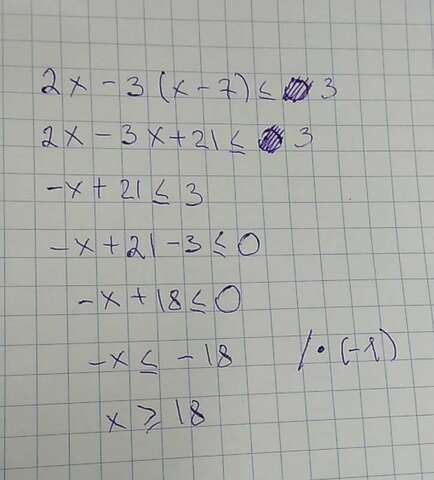 2x - 3(x - 7) ≤ 3
2x - 3x + 21 ≤ 3
-x + 21 ≤ 3
-x + 21 - 3 ≤ 0
-x + 18 ≤ 0
-x ≤ -18 /·(-1)
x ≥ 18